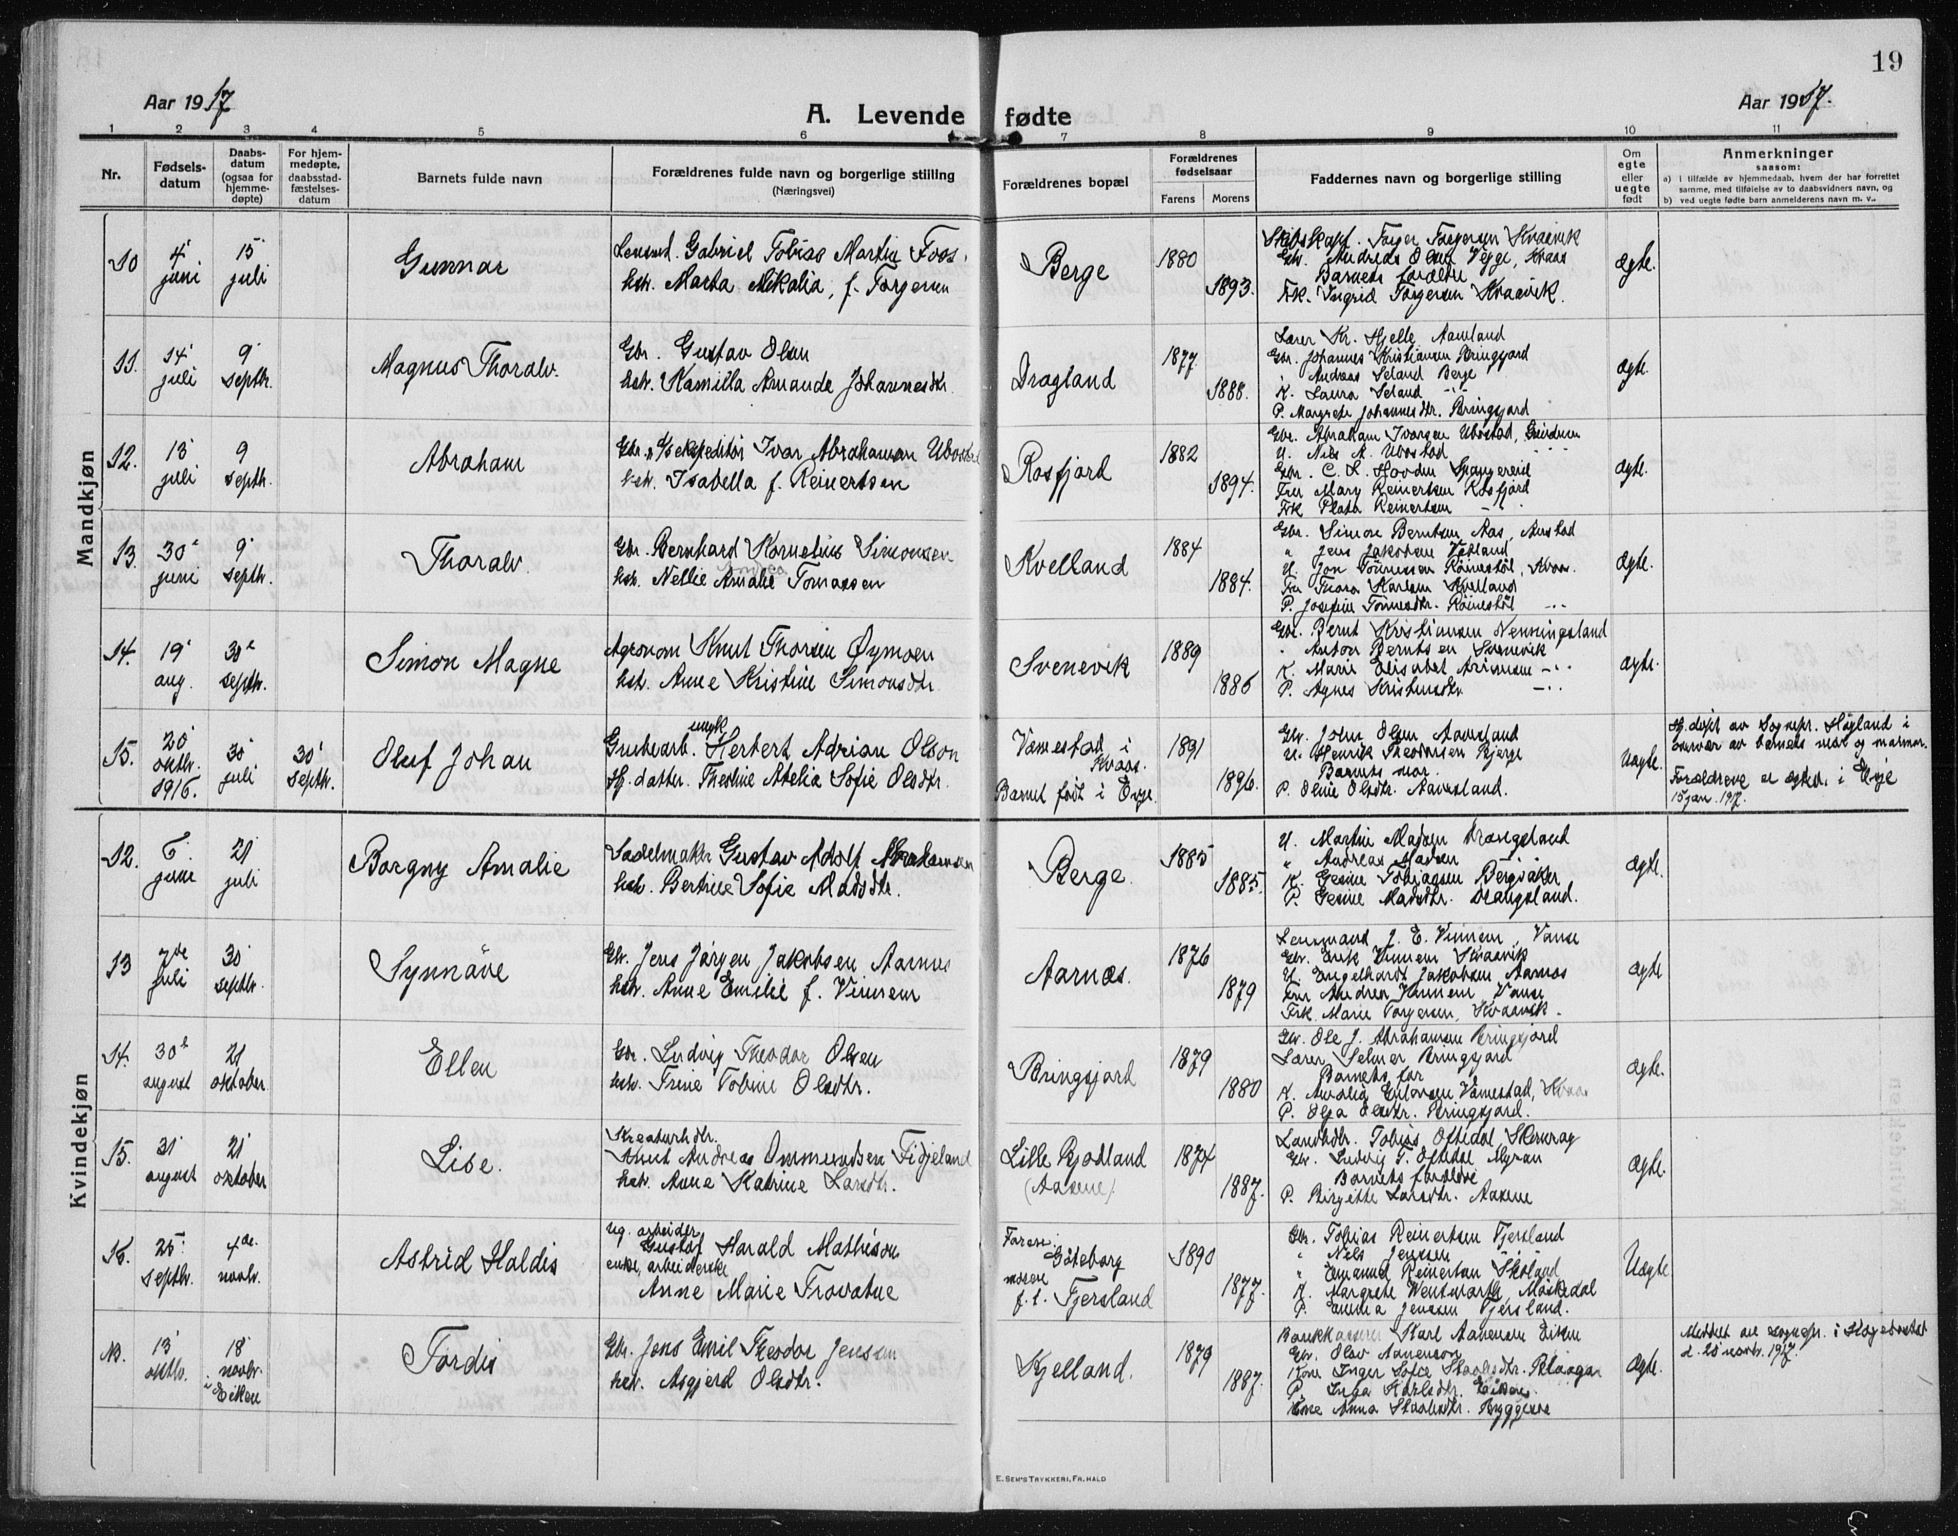 19
Aar 1917
A. Levende fødte
Aar 1917.
1 2 3 4 5 6 7 8 9 10 11
Nr.
Fødsels-
datum
Daabs-
datum
(ogsaa for
hjemme-
døpte)
For hjem-
medøpte,
daabsstad-
fæstelses-
datum
Barnets fulde navn
Forældrenes fulde navn og borgerlige stilling
(Næringsvei)
Forældrenes bopæl
Forældrenes
fødselsaar
Farens Morens
Faddernes navn og borgerlige stilling
Om
egte
eller
uegte
født
Anmerkninger
saasom:
a) i tilfælde av hjemmedaab, hvem der har forrettet
samme, med tilføielse av to daabsvidners navn, og
b) ved uegte fødte barn anmelderens navn m. v..
Mandkjøn
10
4'
juni
15'
juli
Gunnar
Lensmd. Gabriel Tobias Martin Foss.
hst. Marta Mikalia, f. Torgersen
Berge
1880
1893.
Skibskapt. Torger Torgersen Kvaavik
Gbr. Andreas Olsen Vegge, Kvaas
Barnets forældre
Frk. Ingrid Torgersen Kvaavik.
Ægte.
11.
14'
juli
9'
septbr.
Magnus Thoralv.
Gbr. Gustav Olsen
hst. Kamilla Amande Johannesdtr.
Dragland
1877
1888.
Lærer Kr. Hjelle Aamland
Gbr. Johannes Kristiansen Bringsjord
Andreas Seland Berge
K. Laura Seland -"-
P. Margrete Johannesdtr. Bringsjord
ægte.
12.
13'
juli
9
septbr.
Abraham
Gbr. & expeditör Ivar Abrahamsen Ubostad
hst. Isabella f. Reinertsen
Rosfjord
1882
1894.
Gbr. Abraham Ivarsen Ubostad,
U. Nils A. Ubostad
Gbr. C. L. Hovden Spangereid
Fru Mary Reinertsen Rosfjord
Frk Plata Reinertsen -"-
ægte.
13.
30'
juni
9'
septbr.
Thoralv
Gbr. Bernhard Kornelius Simonsen
hst. Nellie Amalie Tomassen
Kvelland
1884
1884.
Gbr. Simon Berntsen Aas, Austad
" Jens Jakobsen Vatland
U. Jon Tönnessen Röinestöl, Kvaas.
Fru Thora Karlsen Kvelland
P. Josefine Tönnesdtr. Röinestöl -"-
Ægte.
14.
19'
aug.
30'
septbr.
Simon Magne
Agronom Knut Thorsen Öymoen
hst. Anne Kristine Simonsdtr.
Svenevik
1889
1886
Gbr. Bernt Kristiansen Nenningsland
" Anton Berntsen Svenevik
K. Marie Elisabet Arensen -"-
P. Agnes Kristensdtr. -"-
ægte.
15.
20'
oktbr.
1916.
30'
juli
30'
septbr.
Oluf Johan
Grubearb. ungk Herbert Adrian Olson
Gj. datter. Thestine Atelia Sofie Olsdtr.
Vamestad i
Kvaas.
Barnet født i Evje.
1891
1896.
Gbr. John Olsen Aavesland
U. Henrik Theodorsen Bjerge
Barnets mor.
P. Oline Olsdtr. Aavesland.
Uægte.
Hj. døpt av Sognepr. Høgland i
overvær av barnets mor og mormor.
Forældrene er egtev. i Evje
15 jan. 1917.
Kvindekjøn
12.
6'
juni
21'
juli
Borgny Amalie
Sadelmaker Gustav Adolf Abrahamsen
hst. Bertine Sofie Madsdtr.
Berge.
1885
1885.
U. Martin Madsen Drangsland
" Andreas Madsen "
K. Gesine Tobiassen Bergsaker
P. Gesine Madsdtr. Drangsland.
ægte.
13
7de
juli
30'
septbr.
Synnöve
Gbr. Jens Jörgen Jakobsen Aarnes
hst. Anne Emilie f. Vinnem
Aarnæs.
1876
1879
Lensmand J. E. Vinnem, Vanse
Gbr. Erik Vinnem Kvaavik
U. Engelhardt Jakobsen Aarnes
Fru Andrea Vinnem, Vanse
Frk. Marie Torgersen, Kvaavik.
ægte
14.
30'
august
21'
oktober
Ellen
Gbr. Ludvig Theodor Olsen
hst. Trine Tobine Olsdtr.
Bringsjord
1879
1880
Gbr. Ole J. Abrahamsen Bringsjord
Lærer Selmer Bringsjord
Barnets far
K. Amalie Gulovsen Vamestad, Kvaas
P. Olga Olsdtr. Bringsjord.
ægte.
15.
31'
august
21'
oktober
Lise.
Kreaturhdlr.
Knut Andreas Ommundsen Fidjeland
hst. Anne Katrine Larsdtr.
Lille Rjodland
(Aasene).
1874
1887.
Landhdlr. Tobias Oftedal, Skeivrag
Gbr. Ludvig T. Oftedal Myran
Barnets forældre
P. Birgitte Larsdtr. Aasene
Ægte
16.
25'
septbr.
4de.
novbr.
Astrid Haldis
ug. arbeider
Gustaf Harald Mathison
enke, arbeiderske
Anne Marie Trovatne
Faren:
Göteborg
moren
f. t. Fjersland
1890
1877.
Gbr. Tobias Reinertsen Fjersland
" Nils Jenssen "
" Emanuel Reinertsen Skoland
K. Margrete Wentworth, Möskedal
P. Emma Jenssen Fjersland.
Uægte
13'
oktbr.
18'
novbr.
i Eiken
Tordis
Gbr. Jens Emil Theodor Jenssen
hst. Asgjerd Olsdtr.
Kjelland.
1879
1887.
Bankkasserer Karl Aanensen Eiken
Gbr. Olav Aanenson
Kone Inger Sofie Skoolsdtr.
P. Inga Karlsdtr. Eiken.
Kone Anna
Ægte.
Meddelt av sognepr. i Hægebostad
d. 20 novbr. 1917.
E. Sem's Trykkeri, Fr.hald